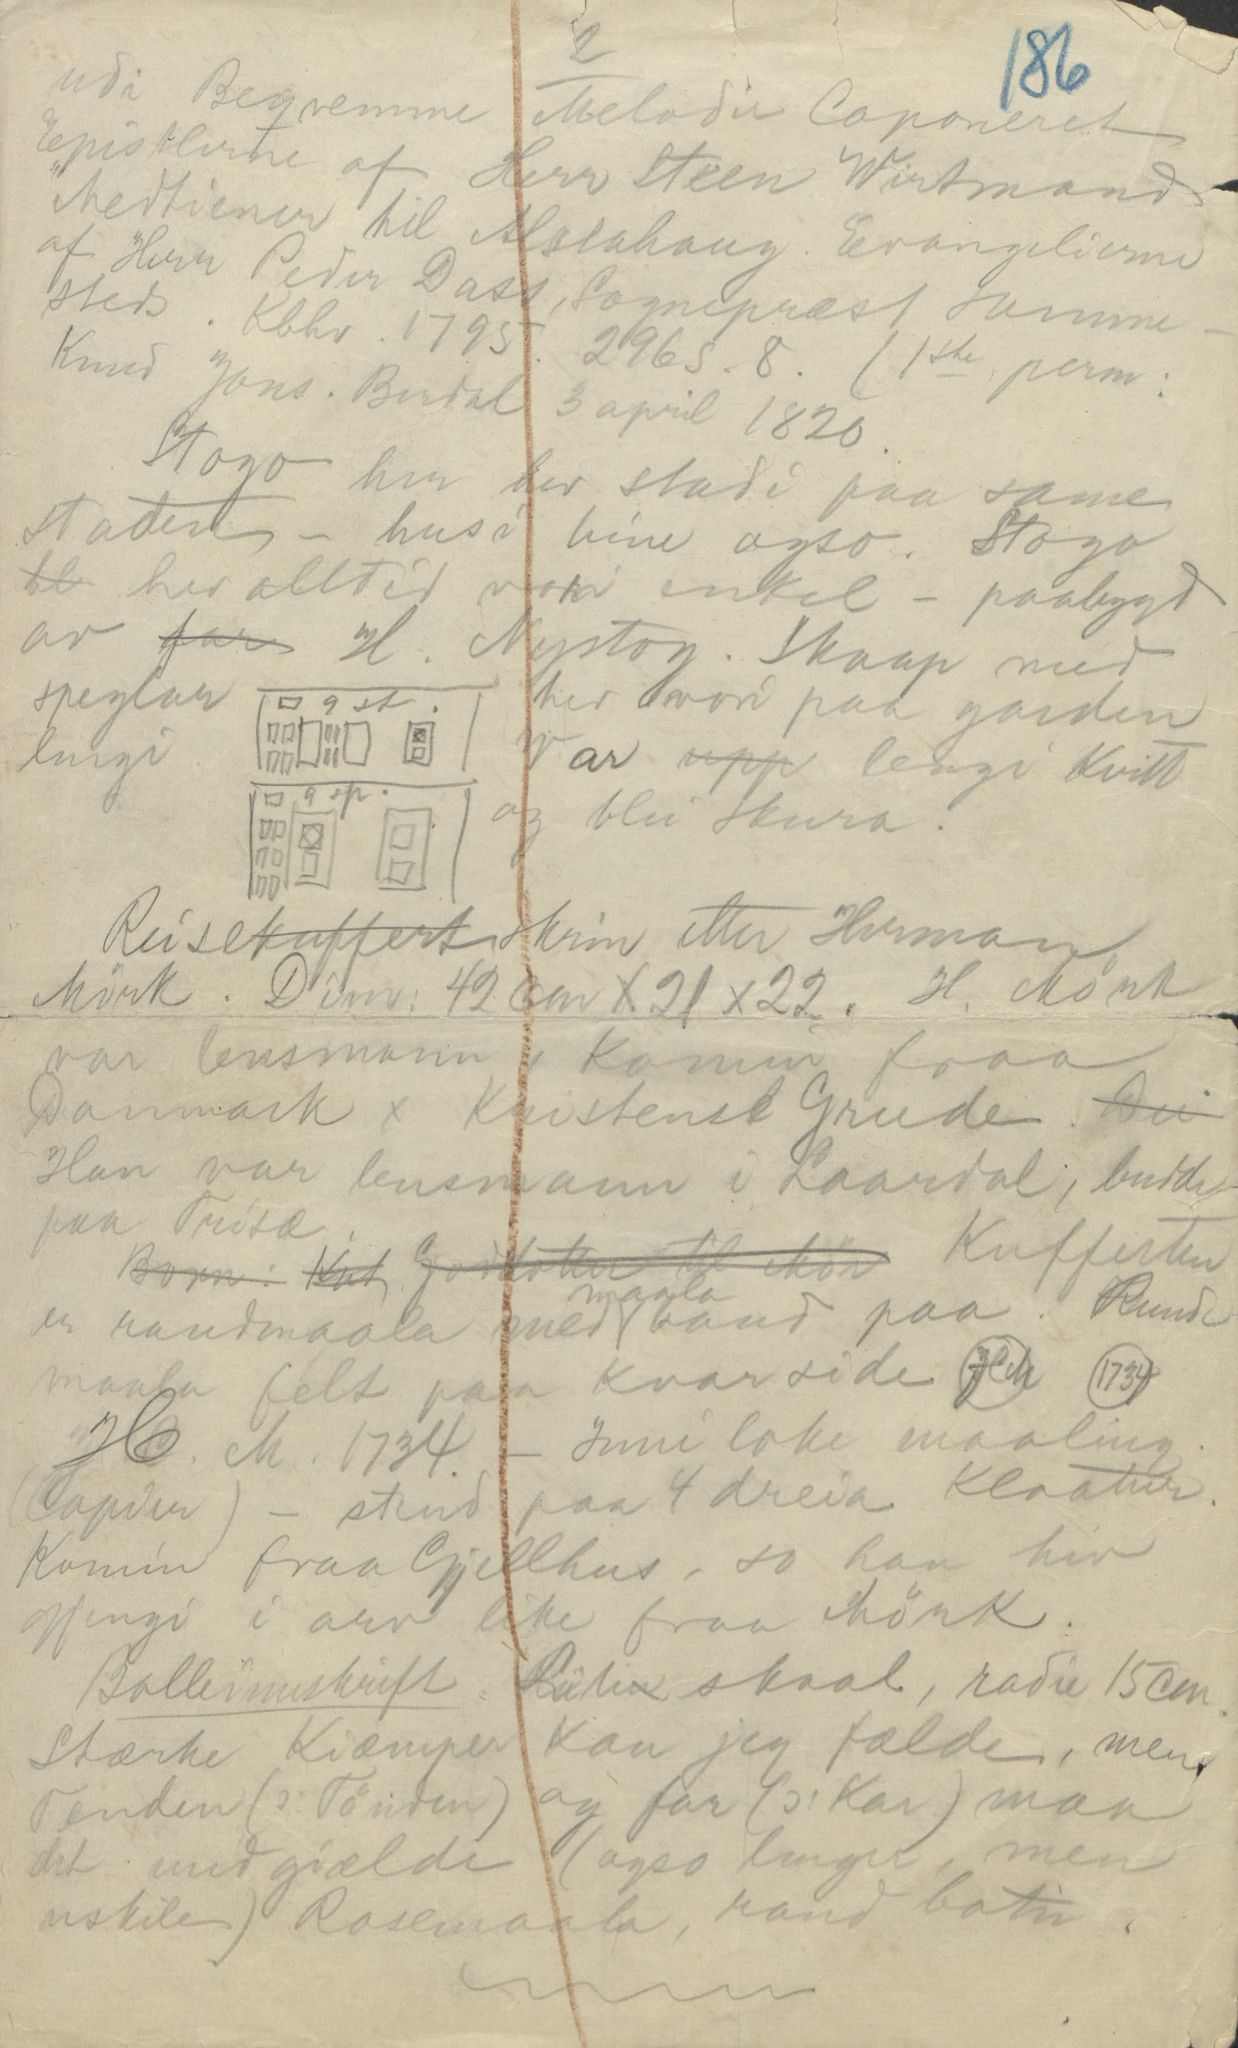 2
186
udi Beqvemme Melodier Caponeret
Epistlerne af Herr Steen Wirtmand
"Medtiener til Alstahaug. Evangelierne
af Herr Peder Dass, Sognepræst samme-
steds. Kbhv. 1795. 296 s. 8. (1ste perm:
Knud Jons. Berdal 3 april 1820.
Stogo her her stadi paa same
staden - husi hine ogso. Stogo
bl her alltid vori enkel - paabygd
av far H. Nystog. Skaap med
speglar her vori paa garden
lengi.
9 st.
Var upp lengi kvitt
9 sp.
og blei skura.
Reisekuffert skrin etter Herman
Mörk. Dim: 42 cm X 21 x 22. H. Mörk
var lensmann, komin fraa
Danmark x Kristense Grude. Dei
Han var lensmann i Laardal, budde
paa Trisæ.
Born: Knt Godtotten til Mör Kufferten
maala
er raudmaala med band paa. Runde
maala felt paa kvar side HCM 1734
HC. M. 1734. - Inni loke maaling.
(Copier) - stend paa 4 dreia klaatur.
Komin fraa Gjellhus, so han her
gjengi i arv like fraa Mörk.
Bolleinnskrift. skaal, radie 15 cm.
Stærke Kiæmper kan jeg fælde, men
Tenden (ɔ: Tönden) og far (ɔ: Kar) maa
det undgiælde (ogso lenger, men
uskile) Rosemaala, raud botn.